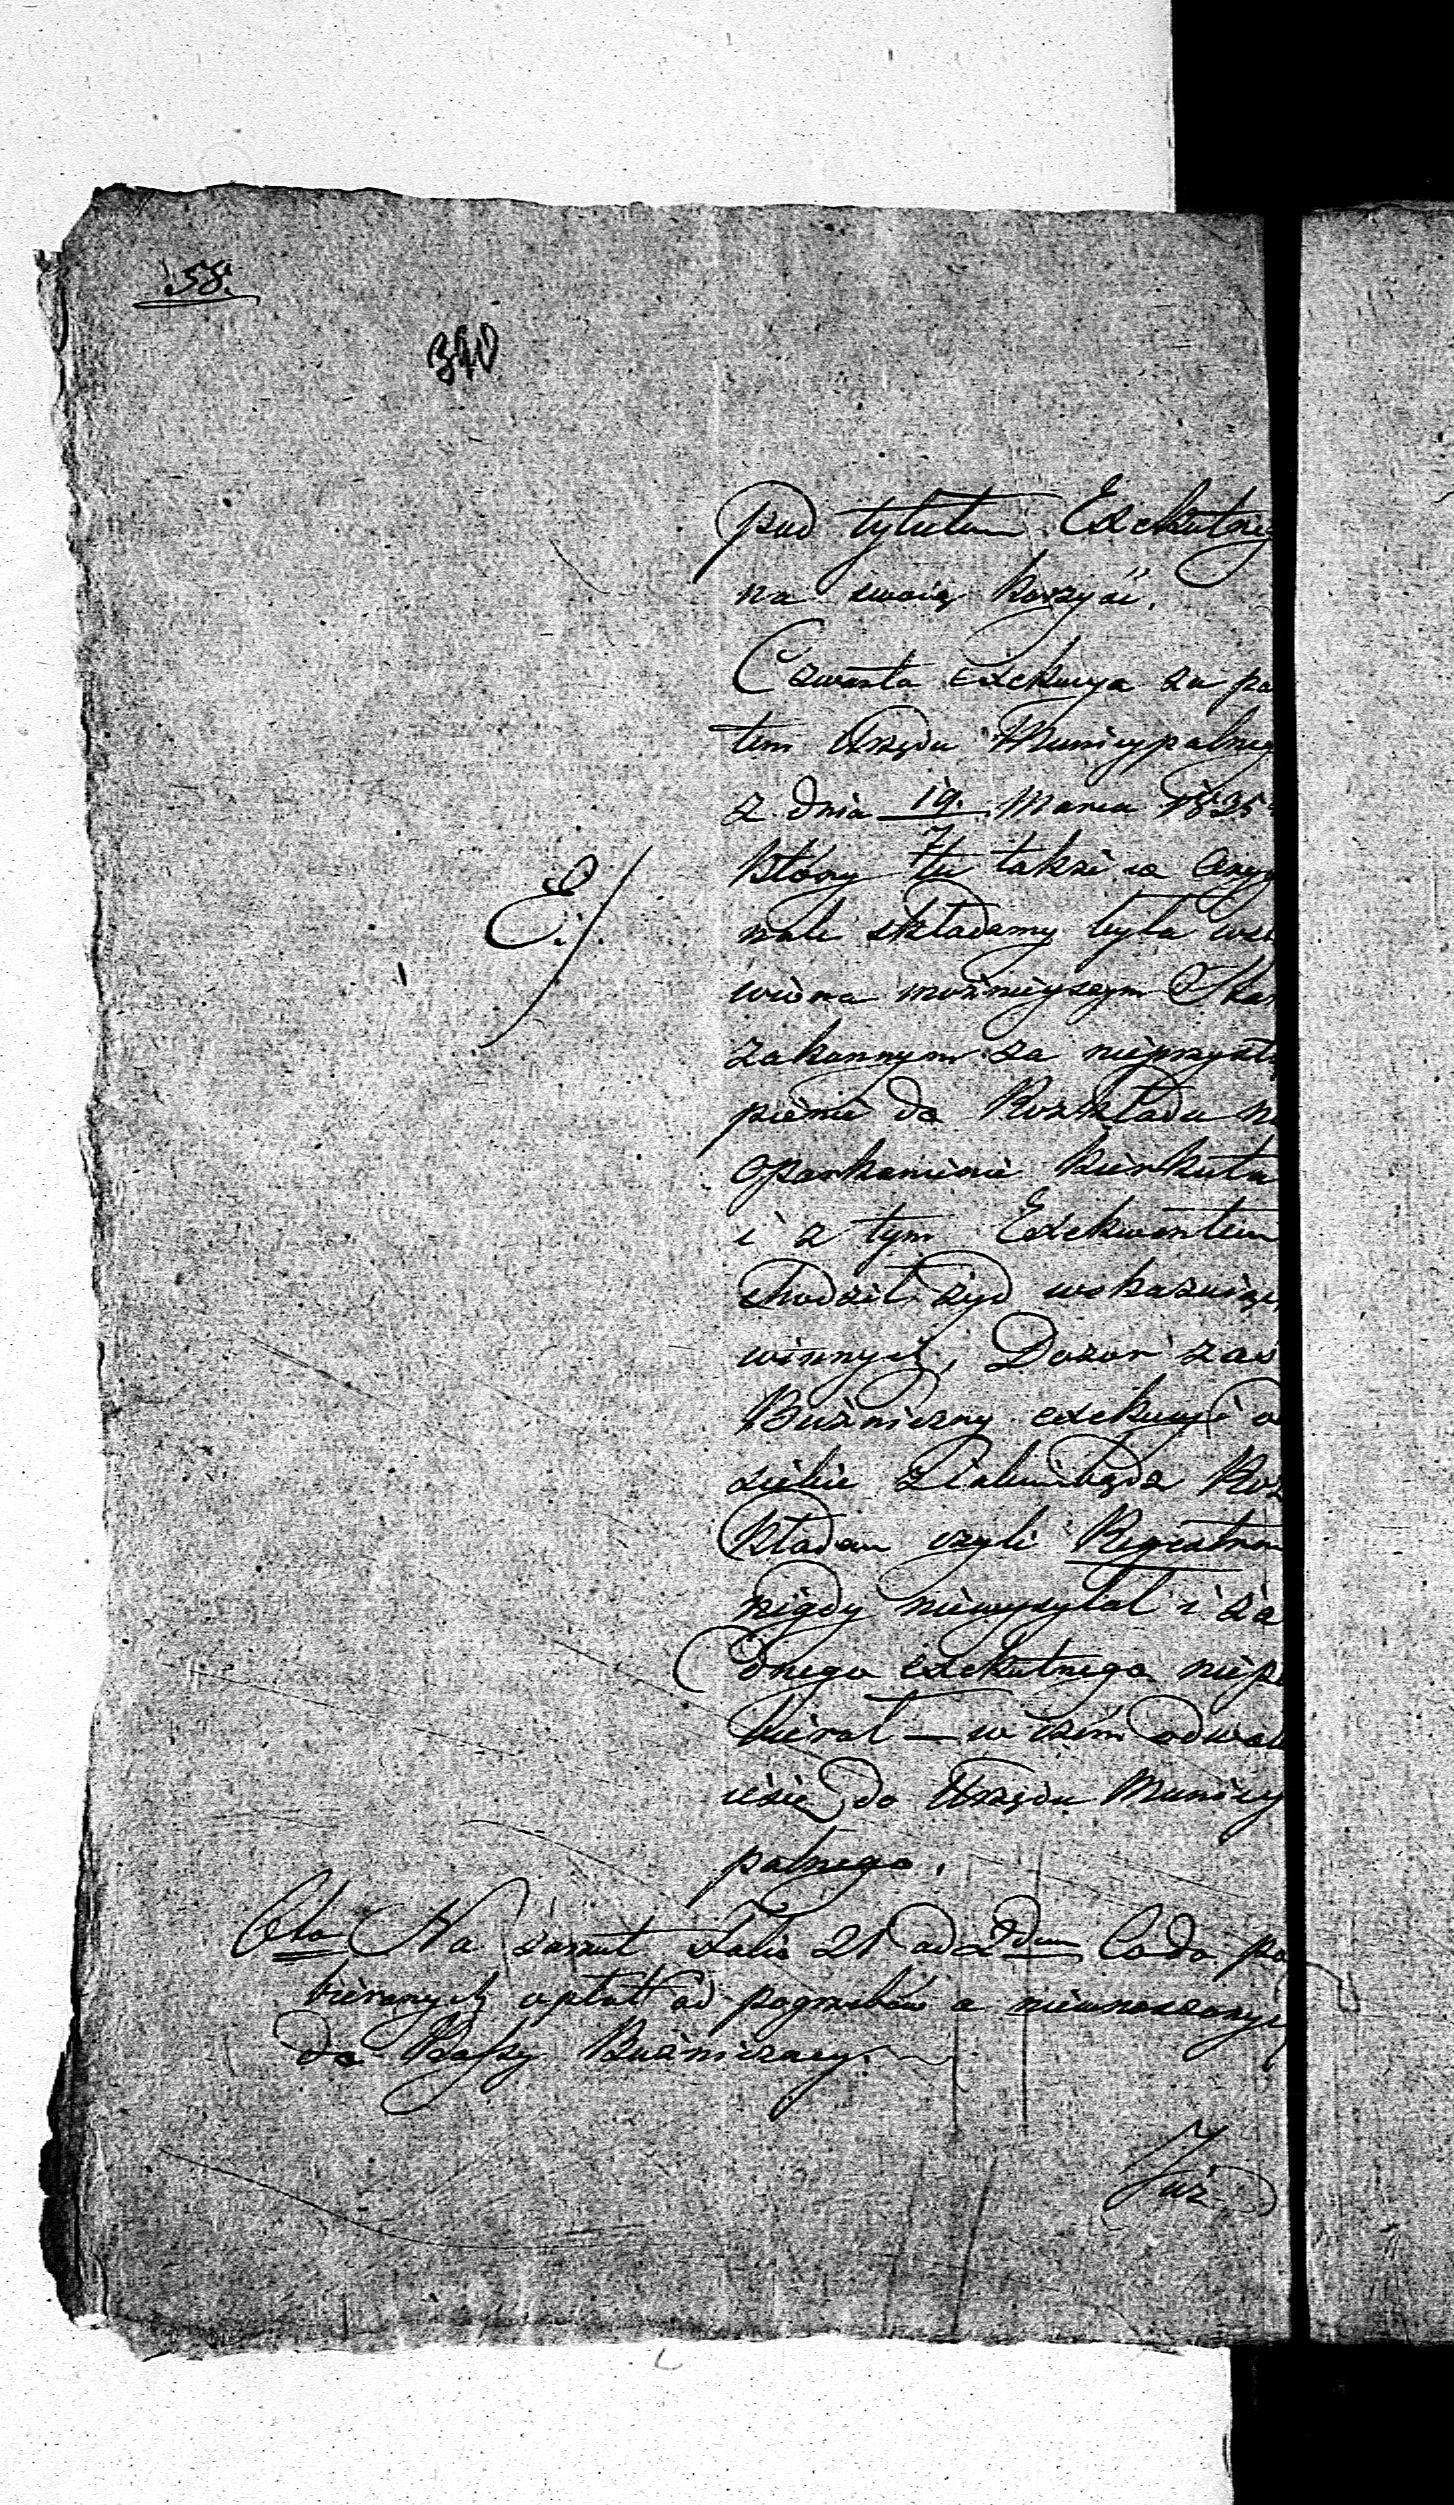 58.
340
pod tytułem Exekutneg
na swoię korzyść.
Czwarta exekucya za po
tem Urzędu Municypalneg
z dnia 19. Marca 1835
który tu także w Oryg
E./.
nale składamy była wsta
wiona możnieyszym Star
zakonnym za nieprzystą
pienie do Rozkładu na
oparkanienie kierkuta
i z tym Exekwentem
chodził żyd wskazuiąc
winnych, Dozór zaś
Bużniczny exekucyi o
kładau czyli Regestrem
nigdy niewysyłał i ża
dnego exekutnego niepo
bierał — w czém odwołu
iesię do Urzędu Municy
palnego.
Na zarzut Folio 21 ad 2dum Co do po
bieranych opłat od pogrzebów a niewnoszonych
do Kassy Bużniczney.
Już